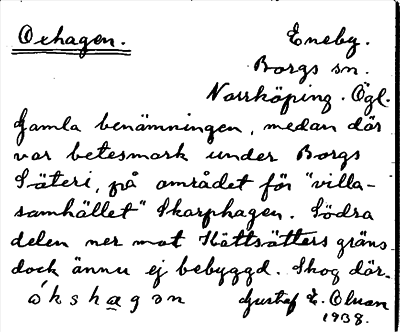 Oxhagen.
Eneby.
Borgs sn.
Norrköping. Ögl.
Gamla benämningen, medan där
var betesmark under Borgs
Säteri, på området för "villa-
samhället" Skarphagen. Södra
delen ner mot Hättsätters gräns
dock ännu ej bebyggd. Skog där.
ókshagən Gustaf E. Olsson
1938.